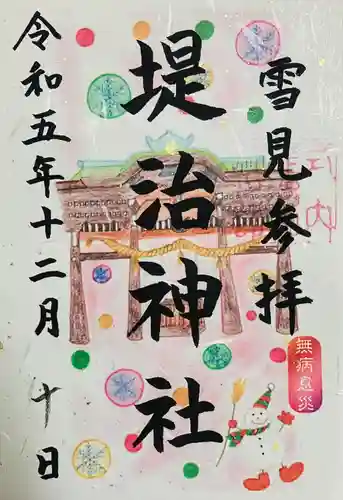 雪見参拝
堤治神社
令和五年十二月 十日
無病息災